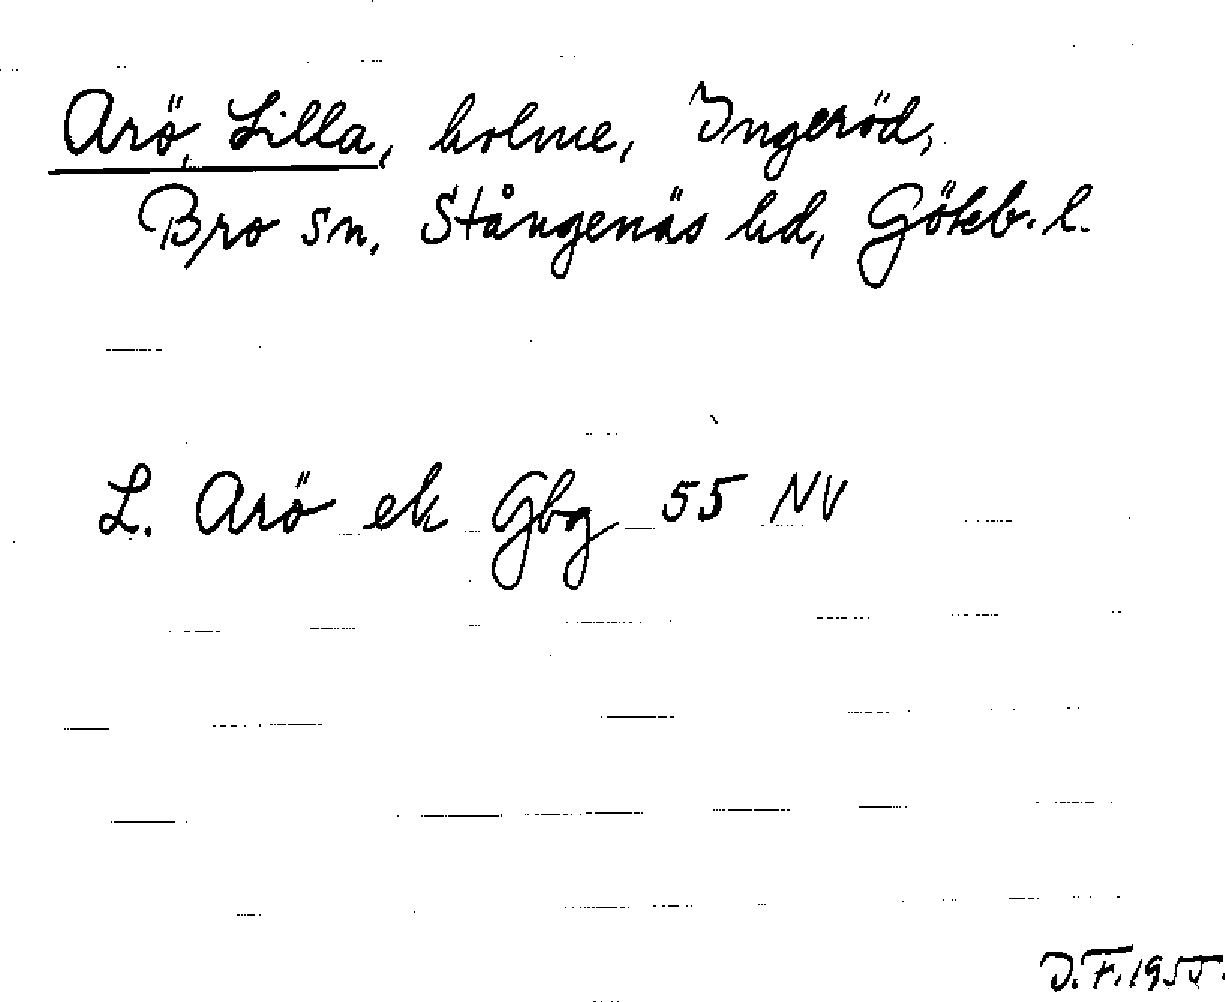 Arö, Lilla, holme, Ingeröd,
Bro sn, Stångenäs hd, Göteb. l.
L. Arö ek Gbg 55 NV
D.F. 1955.